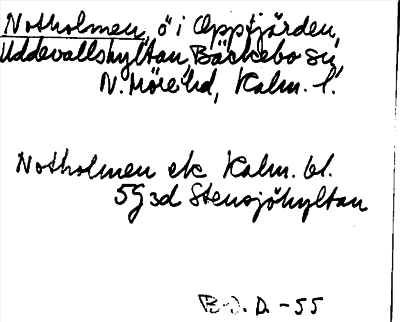 Notholmen, ö i Oppfjärden,
Uddevallshyltan, Bäckebo sn,
N. Möre hd, Kalm. l.
Notholmen ek Kalm. bl.
5G3d Stensjöhyltan
B-J. D. -55